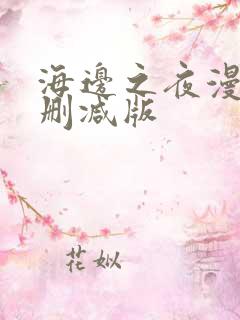 海邊之夜漫
删减版
花姒